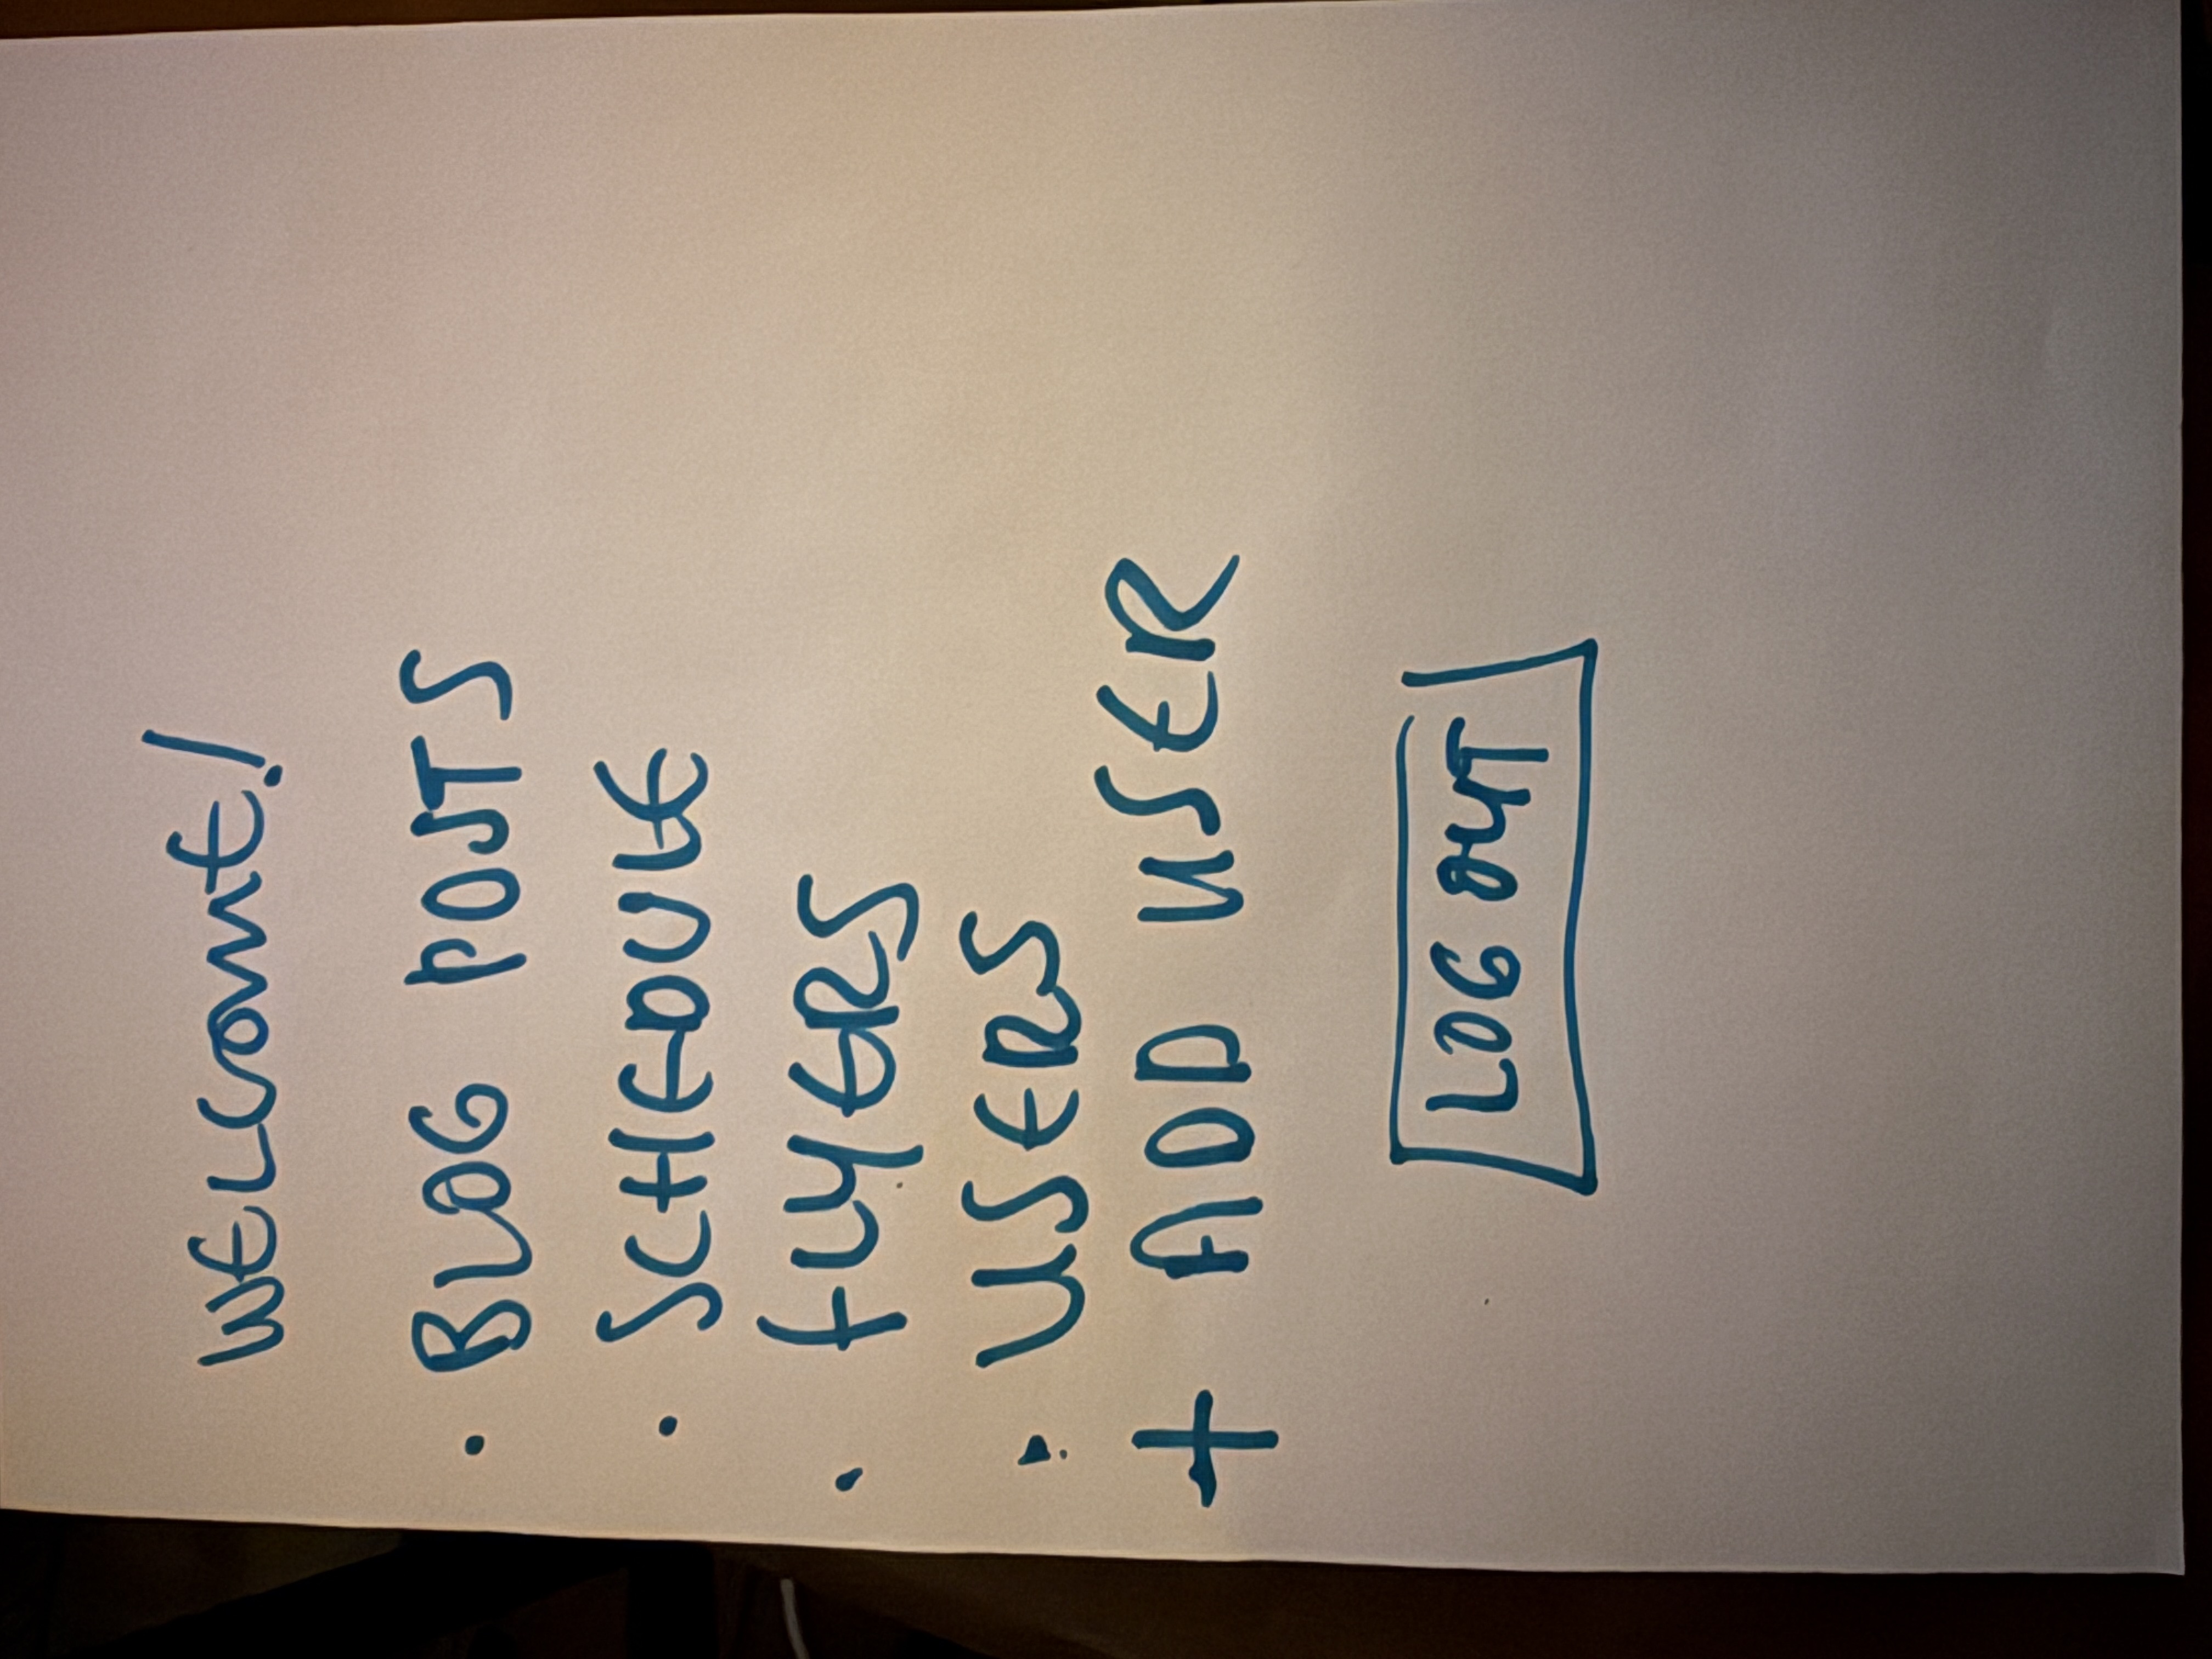 WELCOME!
· BLOG POSTS
· SCHEDULE
· FLYERS
· USERS
+ ADD USER
LOG OUT